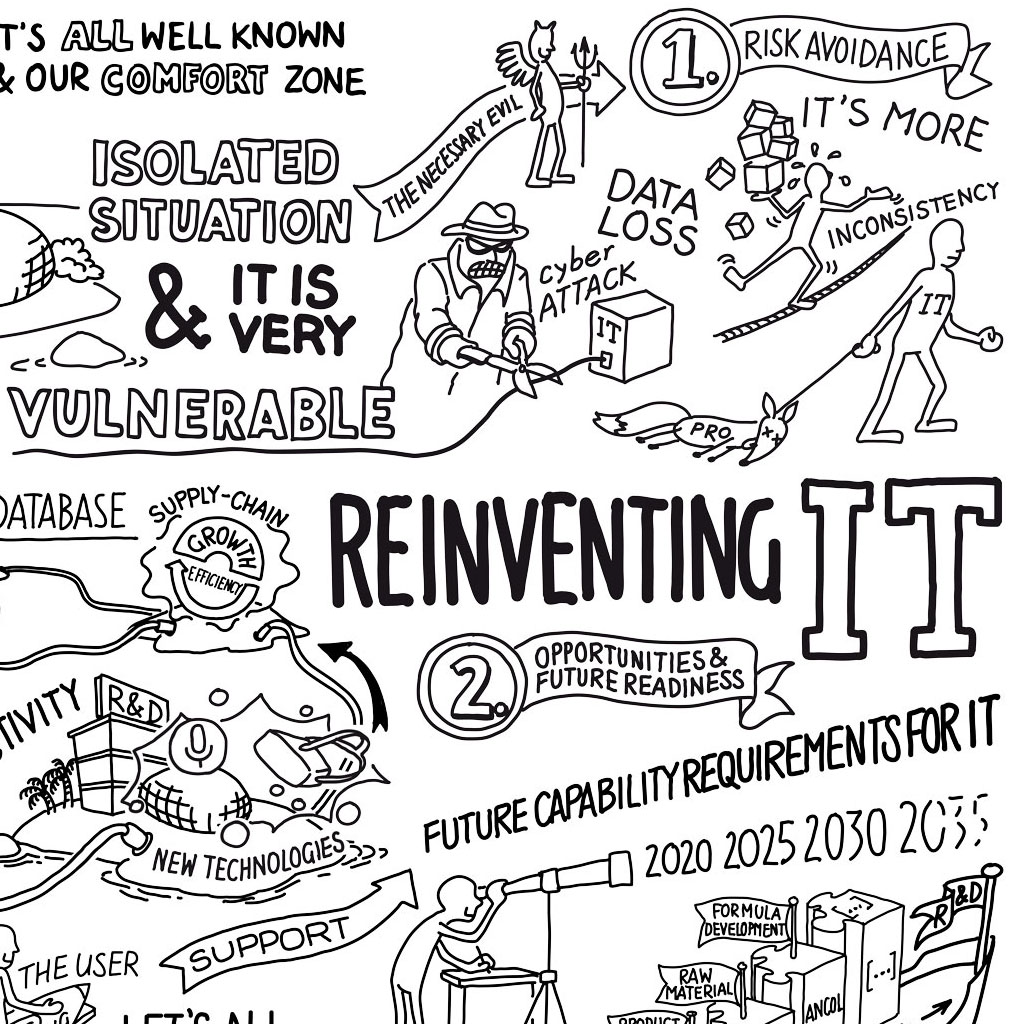 T'S ALL WELL KNOWN
& OUR COMFORT ZONE
ISOLATED
SITUATION
& IT IS
VERY
VULNERABLE
THE NECESSARY EVIL
1.
RISK AVOIDANCE
IT'S MORE
DATA
LOSS
INCONSISTENCY
cyber
ATTACK
IT
IT
PRO
DATABASE
SUPPLY-CHAIN
GROWTH
EFFICIENCY
REINVENTING IT
2.
OPPORTUNITIES &
FUTURE READINESS
TIVITY
R&D
NEW TECHNOLOGIES
FUTURE CAPABILITY REQUIREMENTS FOR IT
2020 2025 2030 2035
SUPPORT
THE USER
LET'S ALL
FORMULA
DEVELOPMENT
R&D
RAW
MATERIAL
[...]
ANCOL
PRODUCT